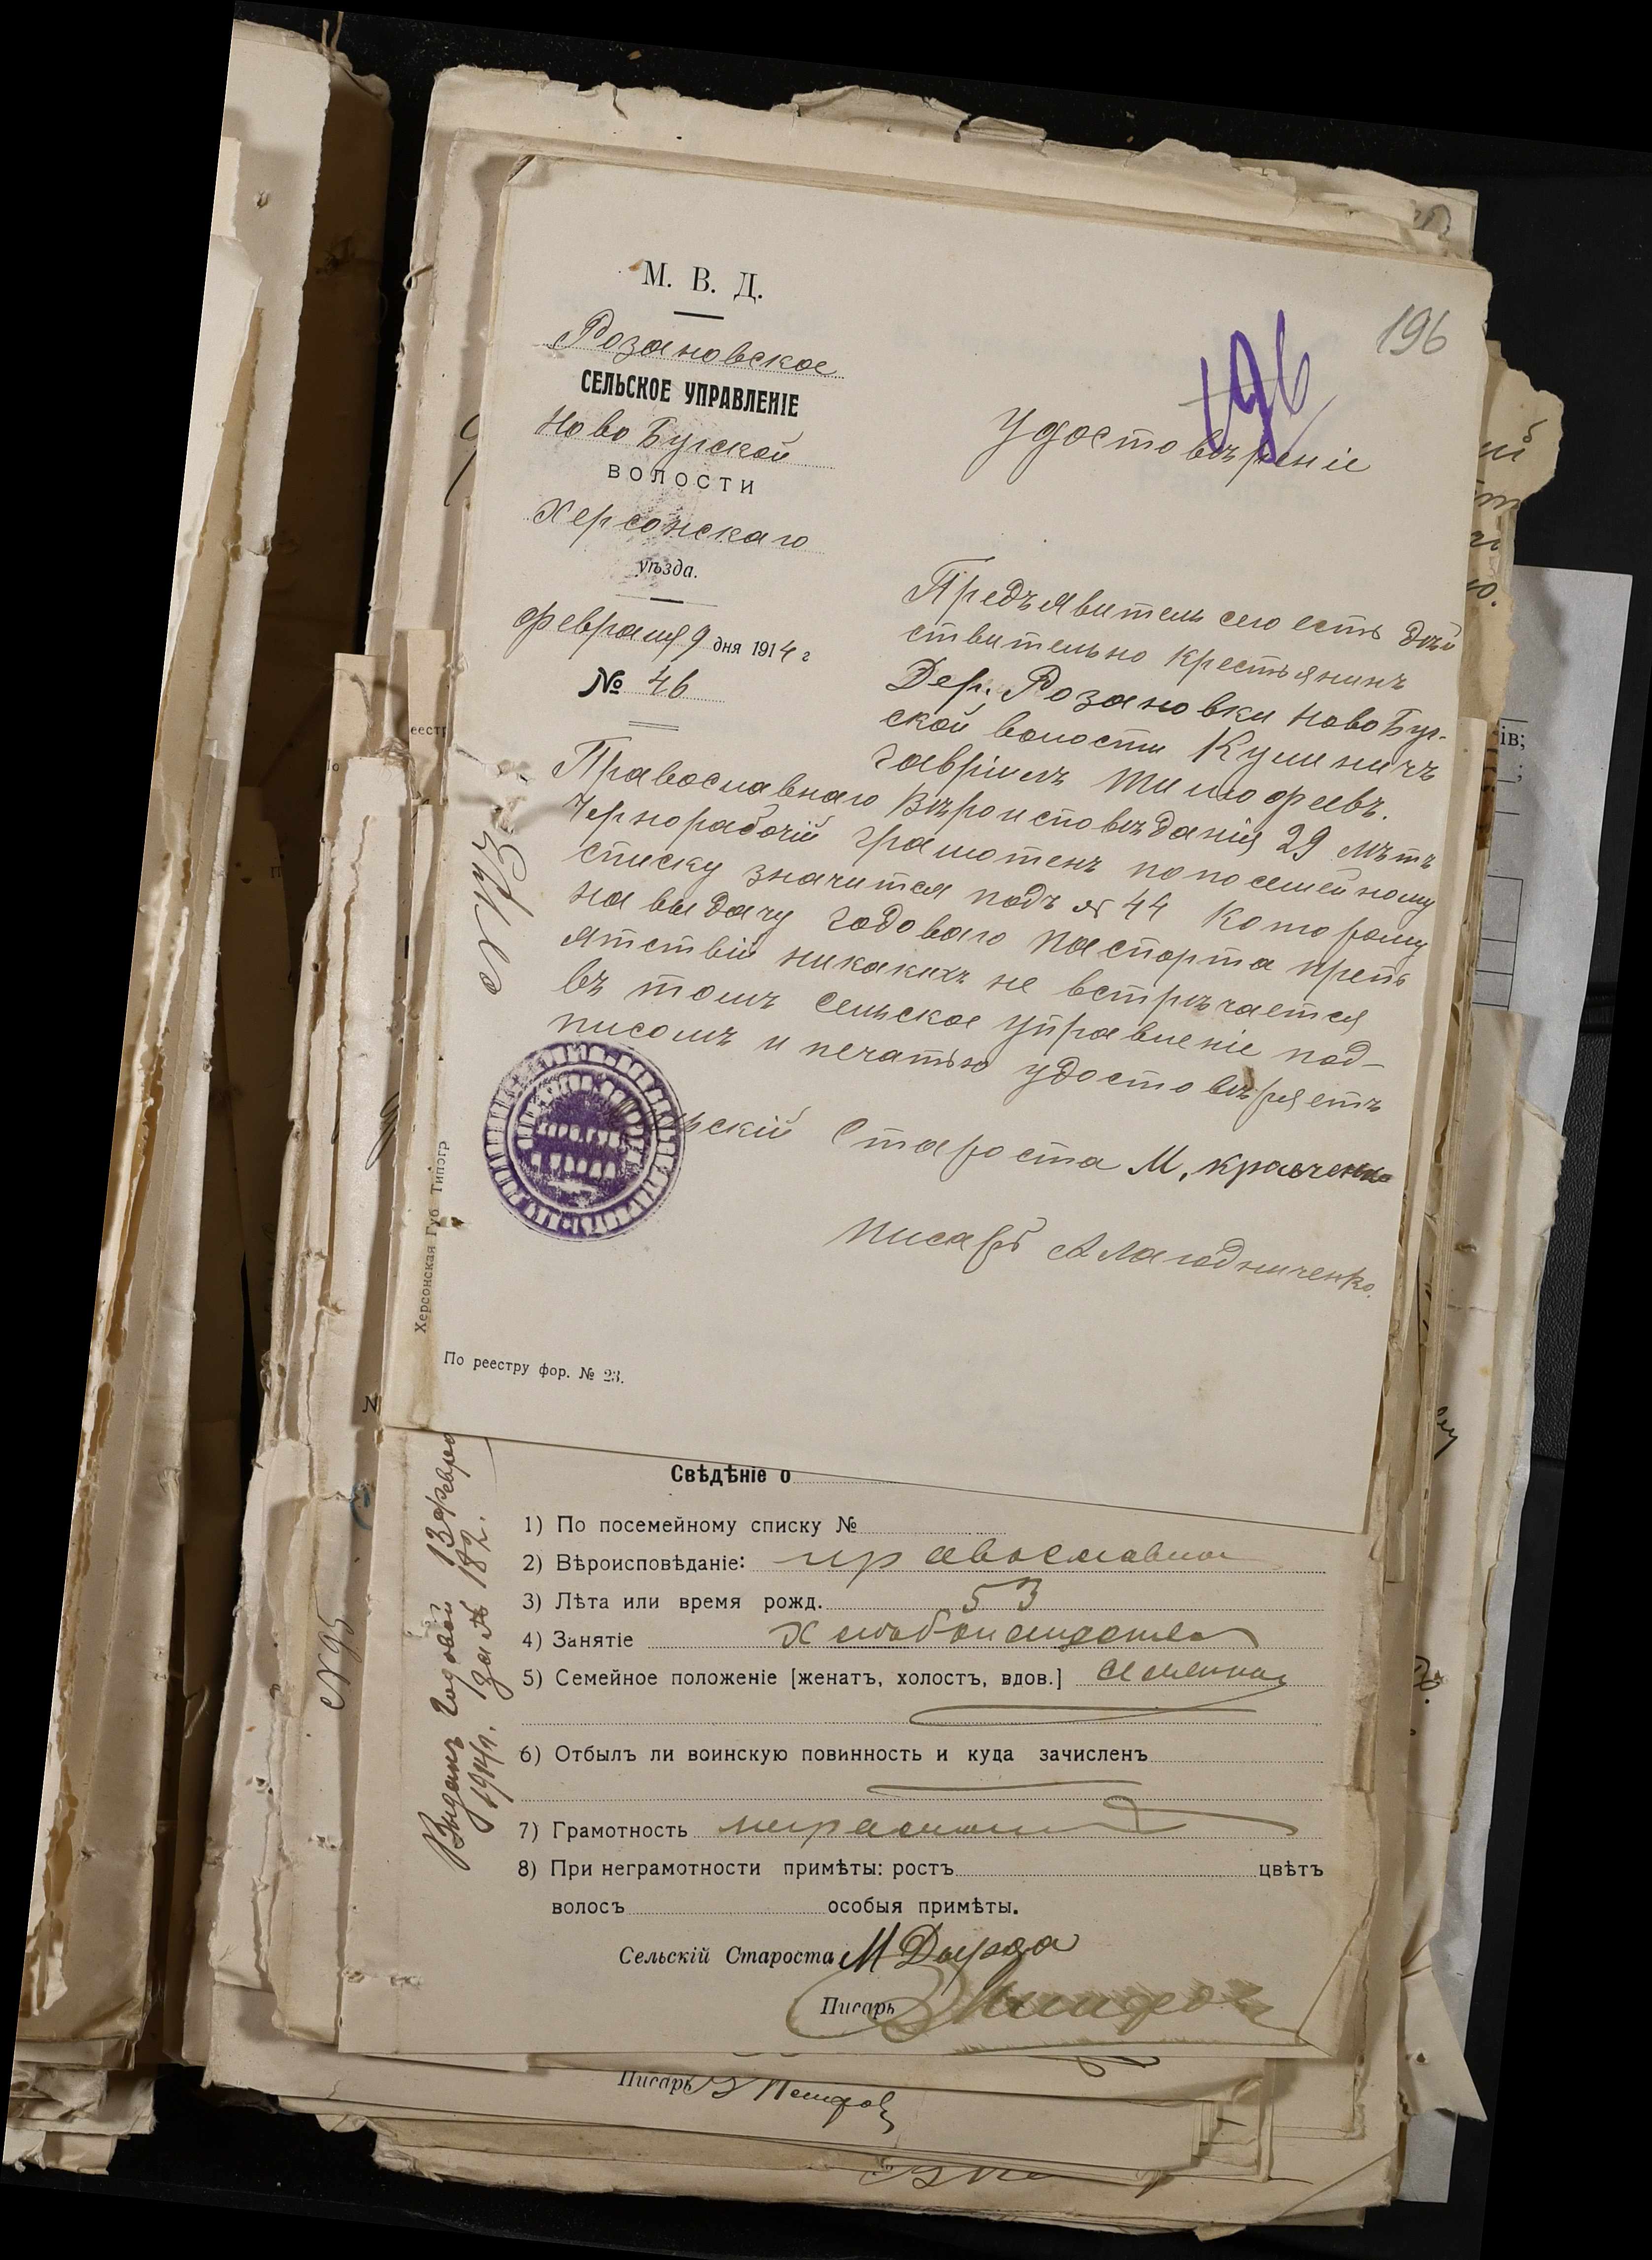 196
196
М. В. Д.
Розановское
СЕЛЬСКОЕ УПРАВЛЕНІЕ
Ново Бугской
ВОЛОСТИ
Херсонскаго
уѣзда.
Февраля 9 дня 1914 г
№ 46
Удостовѣреніе
Предъявитель сего есть дѣй
ствительно крестьянинъ
Дер. Розановки Ново Буг-
ской волости Кулиничъ
Гавріилъ Тимофеевъ.
Православнаго Вѣроисповѣданія 29 лѣтъ
Чернорабочій грамотенъ по посемейному
списку значится подъ № 44 Которому
на выдачу годоваго паспорта препь
ятствій никакихъ не встрѣчается
въ томъ сельское управленіе под-
писомъ и печатью удостовѣряетъ
ьскій Староста М. Кравченко
писарь А Лагодниченко.
Херсонская Губ Типогр
По реестру фор. № 23.
Свѣдѣніе о
1) По посемейному списку №
2) Вѣроисповѣданіе: православное
3) Лѣта или время рожд. 53
4) Занятіе
5) Семейное положеніе [женатъ, холостъ, вдов.]
6) Отбылъ ли воинскую повинность и куда зачисленъ
7) Грамотность
8) При неграмотности примѣты: ростъ цвѣтъ
волосъ особыя примѣты.
Сельскій Староста М
Писарь
Выданъ годовой 13 Февра
1914 г. за № 182.
№ 95
Писарь